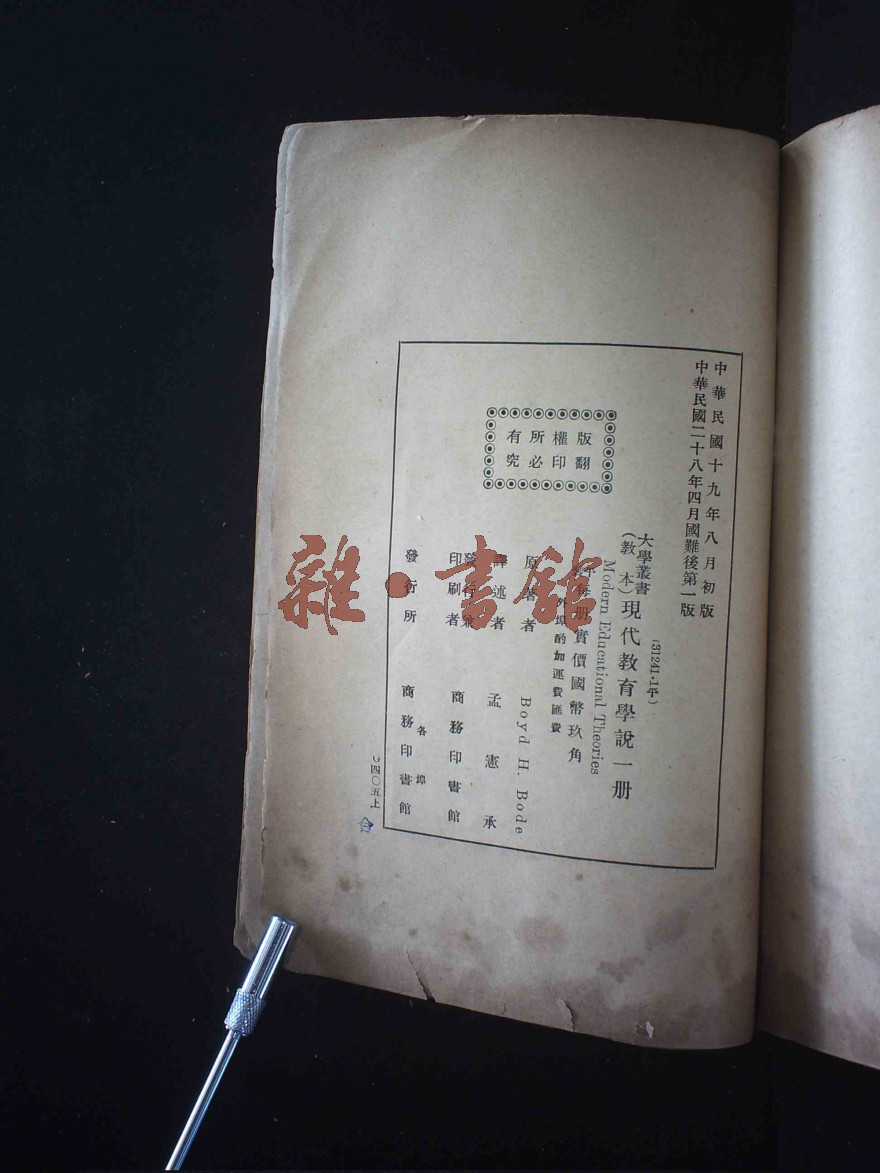 中華民國十九年八月初版
中華民國二十八年四月國難後第一版
(31241·1平)
大學叢書
(教本)
現代教育學說一册
Modern Educational Theories
每册實價國幣玖角
外埠酌加運費匯費
版權所有
翻印必究
原著者 Boyd H. Bode
譯述者 孟憲承
發行兼
印刷者 商務印書館
各埠
發行所 商務印書館
四〇五上
雜·書館